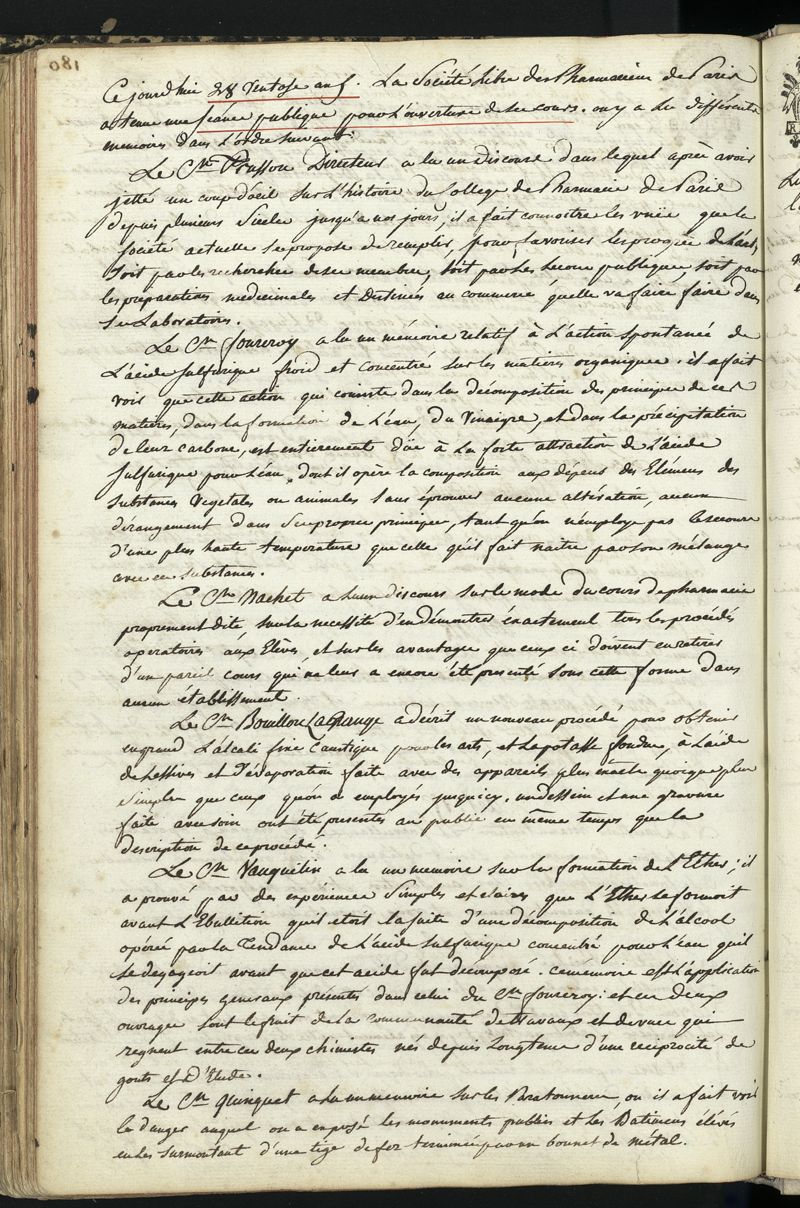 180
Ce jourd'hui 28 Ventose an 5. La Société Libre des Pharmaciens de Paris
a tenue une séance publique pour L'ouverture de ses cours. on y a Lu differents
memoires dans L'ordre suivant:
Le Cen Trusson Directeur a lu un discours dans lequel après avoir
jetté un coup d'oeil sur L'histoire du College de Pharmacie de Paris
depuis plusieurs siecles jusqu'a nos jours, il a fait connoitre les vües que la
société actuelle se propose de remplir, pour favoriser les progrès de L'art,
soit par les recherches de ses membres, soit par les Lecons publiques soit par
les préparations medicinales et destinées au commerce qu'elle va faire faire dans
ses Laboratoires.
Le Cen fourcroy a lu un mémoire relatif à L'action spontanée de
L'acide sulfurique froid et concentré sur les matieres organiques. il a fait
voir que cette action, qui consiste dans la décomposition des principes de ces
matieres, dans la formation de L'eau, du Vinaigre, et dans la précipitation
de leur carbone, est entierement düe à La forte attraction de L'acide
sulfurique pour L'eau, dont il opère la composition aux dépens des Elémens des
substances Vegetales ou animales sans éprouver aucune altération, aucun
dérangement dans ses propres principes, tant qu'on n'employe pas le secours
d'une plus haute température que celle qu'il fait naitre par son mélange
avec ces substances.
Le Cen Nachet a lu un discours sur le mode du cours de pharmacie
proprement dite sur la necessité d'en démontrer exactement tous les procédés
operatoires aux Elèves et sur les avantages que ceux ci doivent en retirer
d'un pareil cours qui ne leur a encore été presenté sous cette forme dans
aucun établissement.
Le Cen Bouillon LaGrange a décrit un nouveau procédé pour obtenir
en grand L'alcali fixe caustique pour les arts, et la potasse fondue, à L'aide
de Lessives et d'évaporation faite avec des appareils plus exacts quoique plus
simples que ceux qu'on a employés jusqu'icy. un dessin et une gravure
faite avec soin ont été presentés au public en meme temps que la
description de ce procédé.
Le Cen Vauquelin a lu un memoire sur la formation de L'Ether; il
a prouvé par des expériences simples et claires que L'Ether se formoit
avant L'Ebullition qu'il etoit la suite d'une décomposition de L'alcool
opérée par la Tendance de L'acide sulfurique concentré pour L'eau qu'il
se degageoit avant que cet acide fut décomposé. ce mémoire est L'application
des principes generaux présentés dans celui du Cen fourcroy: et ces deux
ouvrages sont le fruit de la communauté de travaux et de vues qui
regnent entre ces deux chimistes nés depuis Longtems d'une réciprocité de
gouts et d'Etude.
Le Cen Quinquet a lu un memoire sur les Paratonneres, ou il a fait voir
le danger auquel on a exposé les monuments publics et les Batimens élévés
en les surmontant d'une tige de fer terminée par un bonnet de métal.